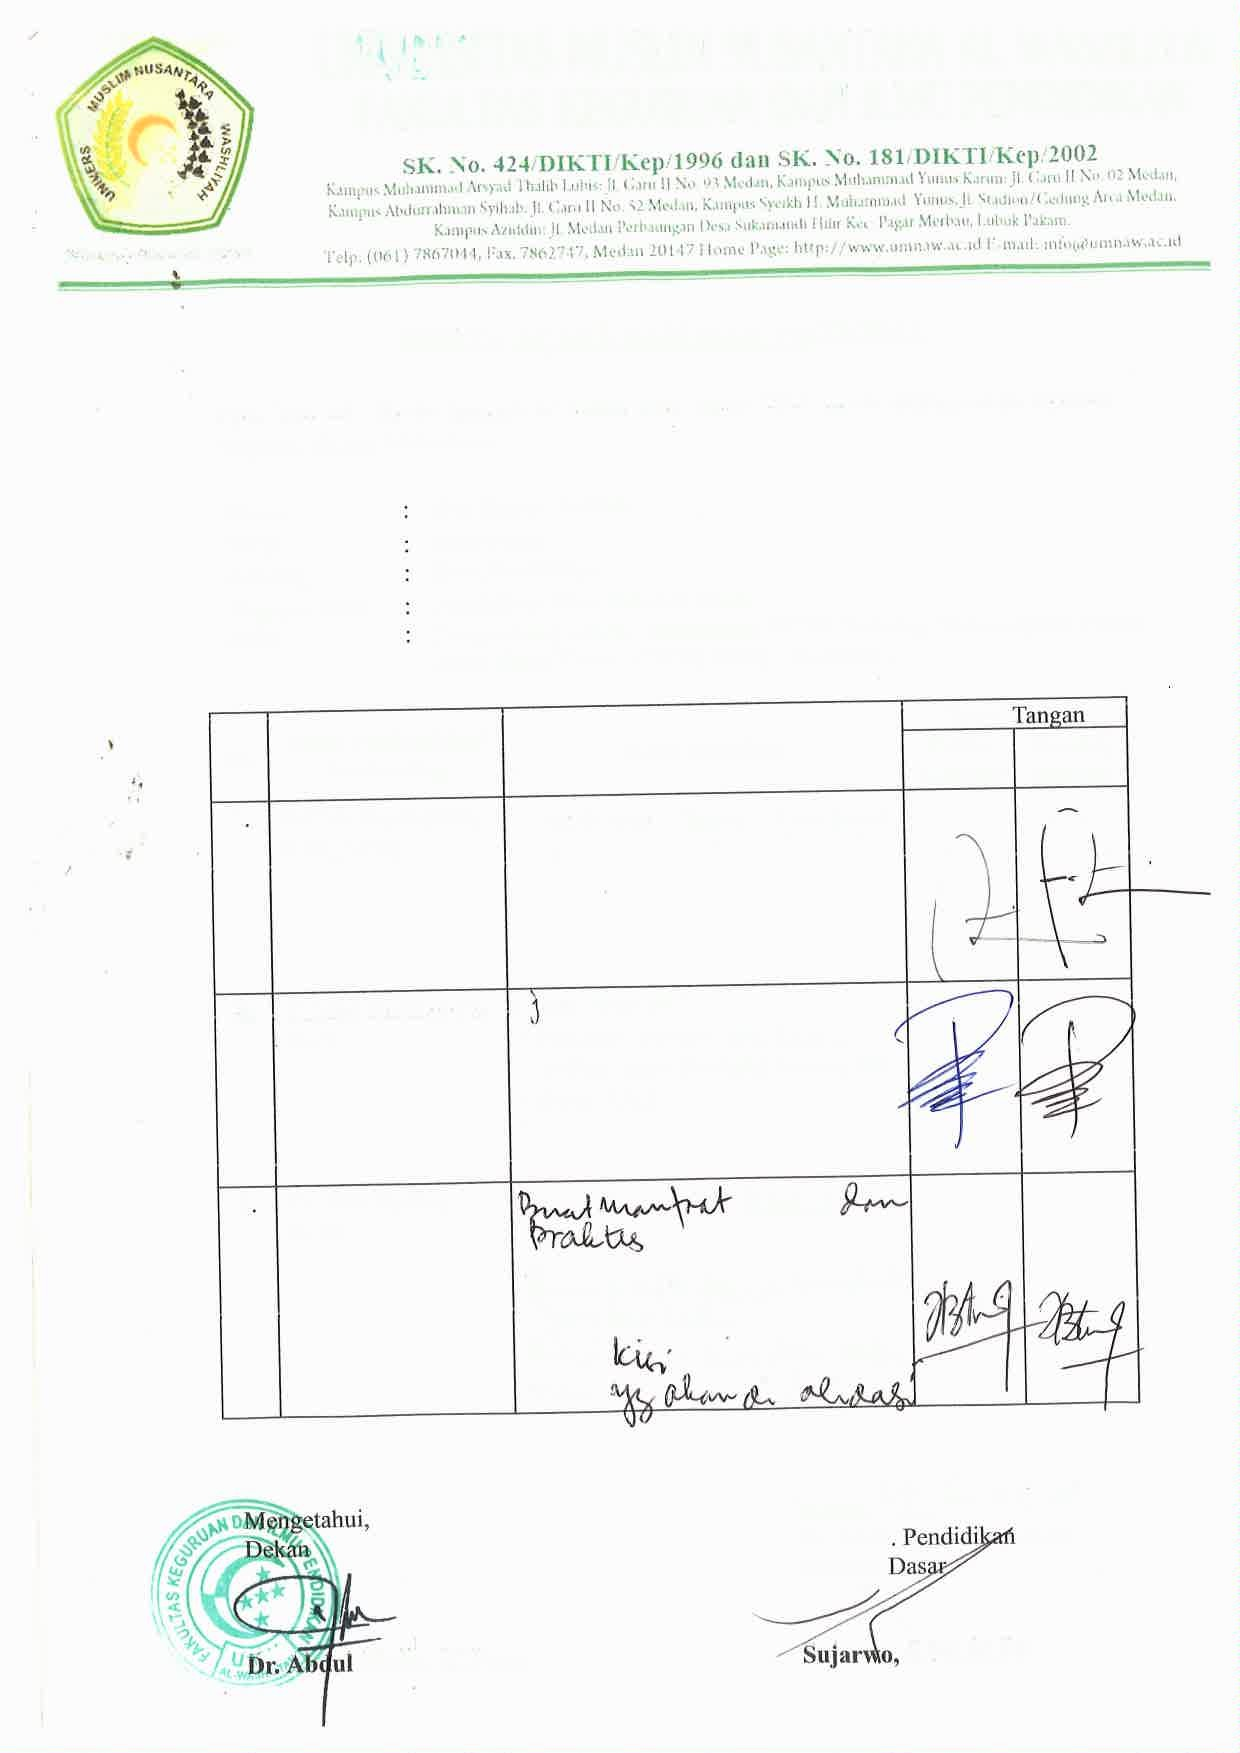 UNIVERS MUSLIM NUSANTARA WASHLIYAH
SK. No. 424/DIKTI/Kep/1996 dan SK. No. 181/DIKTI/Kep/2002
Kampus Muhammad Arsyad Thalib Lubis: Jl. Garu II No. 93 Medan, Kampus Muhammad Yunus Karim: Jl. Garu II No. 02 Medan,
Kampus Abdurrahman Syihab: Jl. Garu II No. 52 Medan, Kampus Syeikh H. Muhammad Yunus, Jl. Stadion/Gedung Arca Medan,
Kampus Aziddin: Jl. Medan Perbaungan Desa Sukamandi Hilir Kec. Pagar Merbau, Lubuk Pakam.
Telp. (061) 7867044, Fax. 7862747, Medan 20147 Home Page: http://www.umnaw.ac.id E-mail: info@umnaw.ac.id
:
:
:
:
:
Tangan
Buat Manfaat dan
Praktis
kisi
yg akan di
Mengetahui,
Dekan
. Pendidikan
Dasar
FAKULTAS KEGURUAN DAN ILMU PENDIDIKAN
Dr. Abdul
Sujarwo,